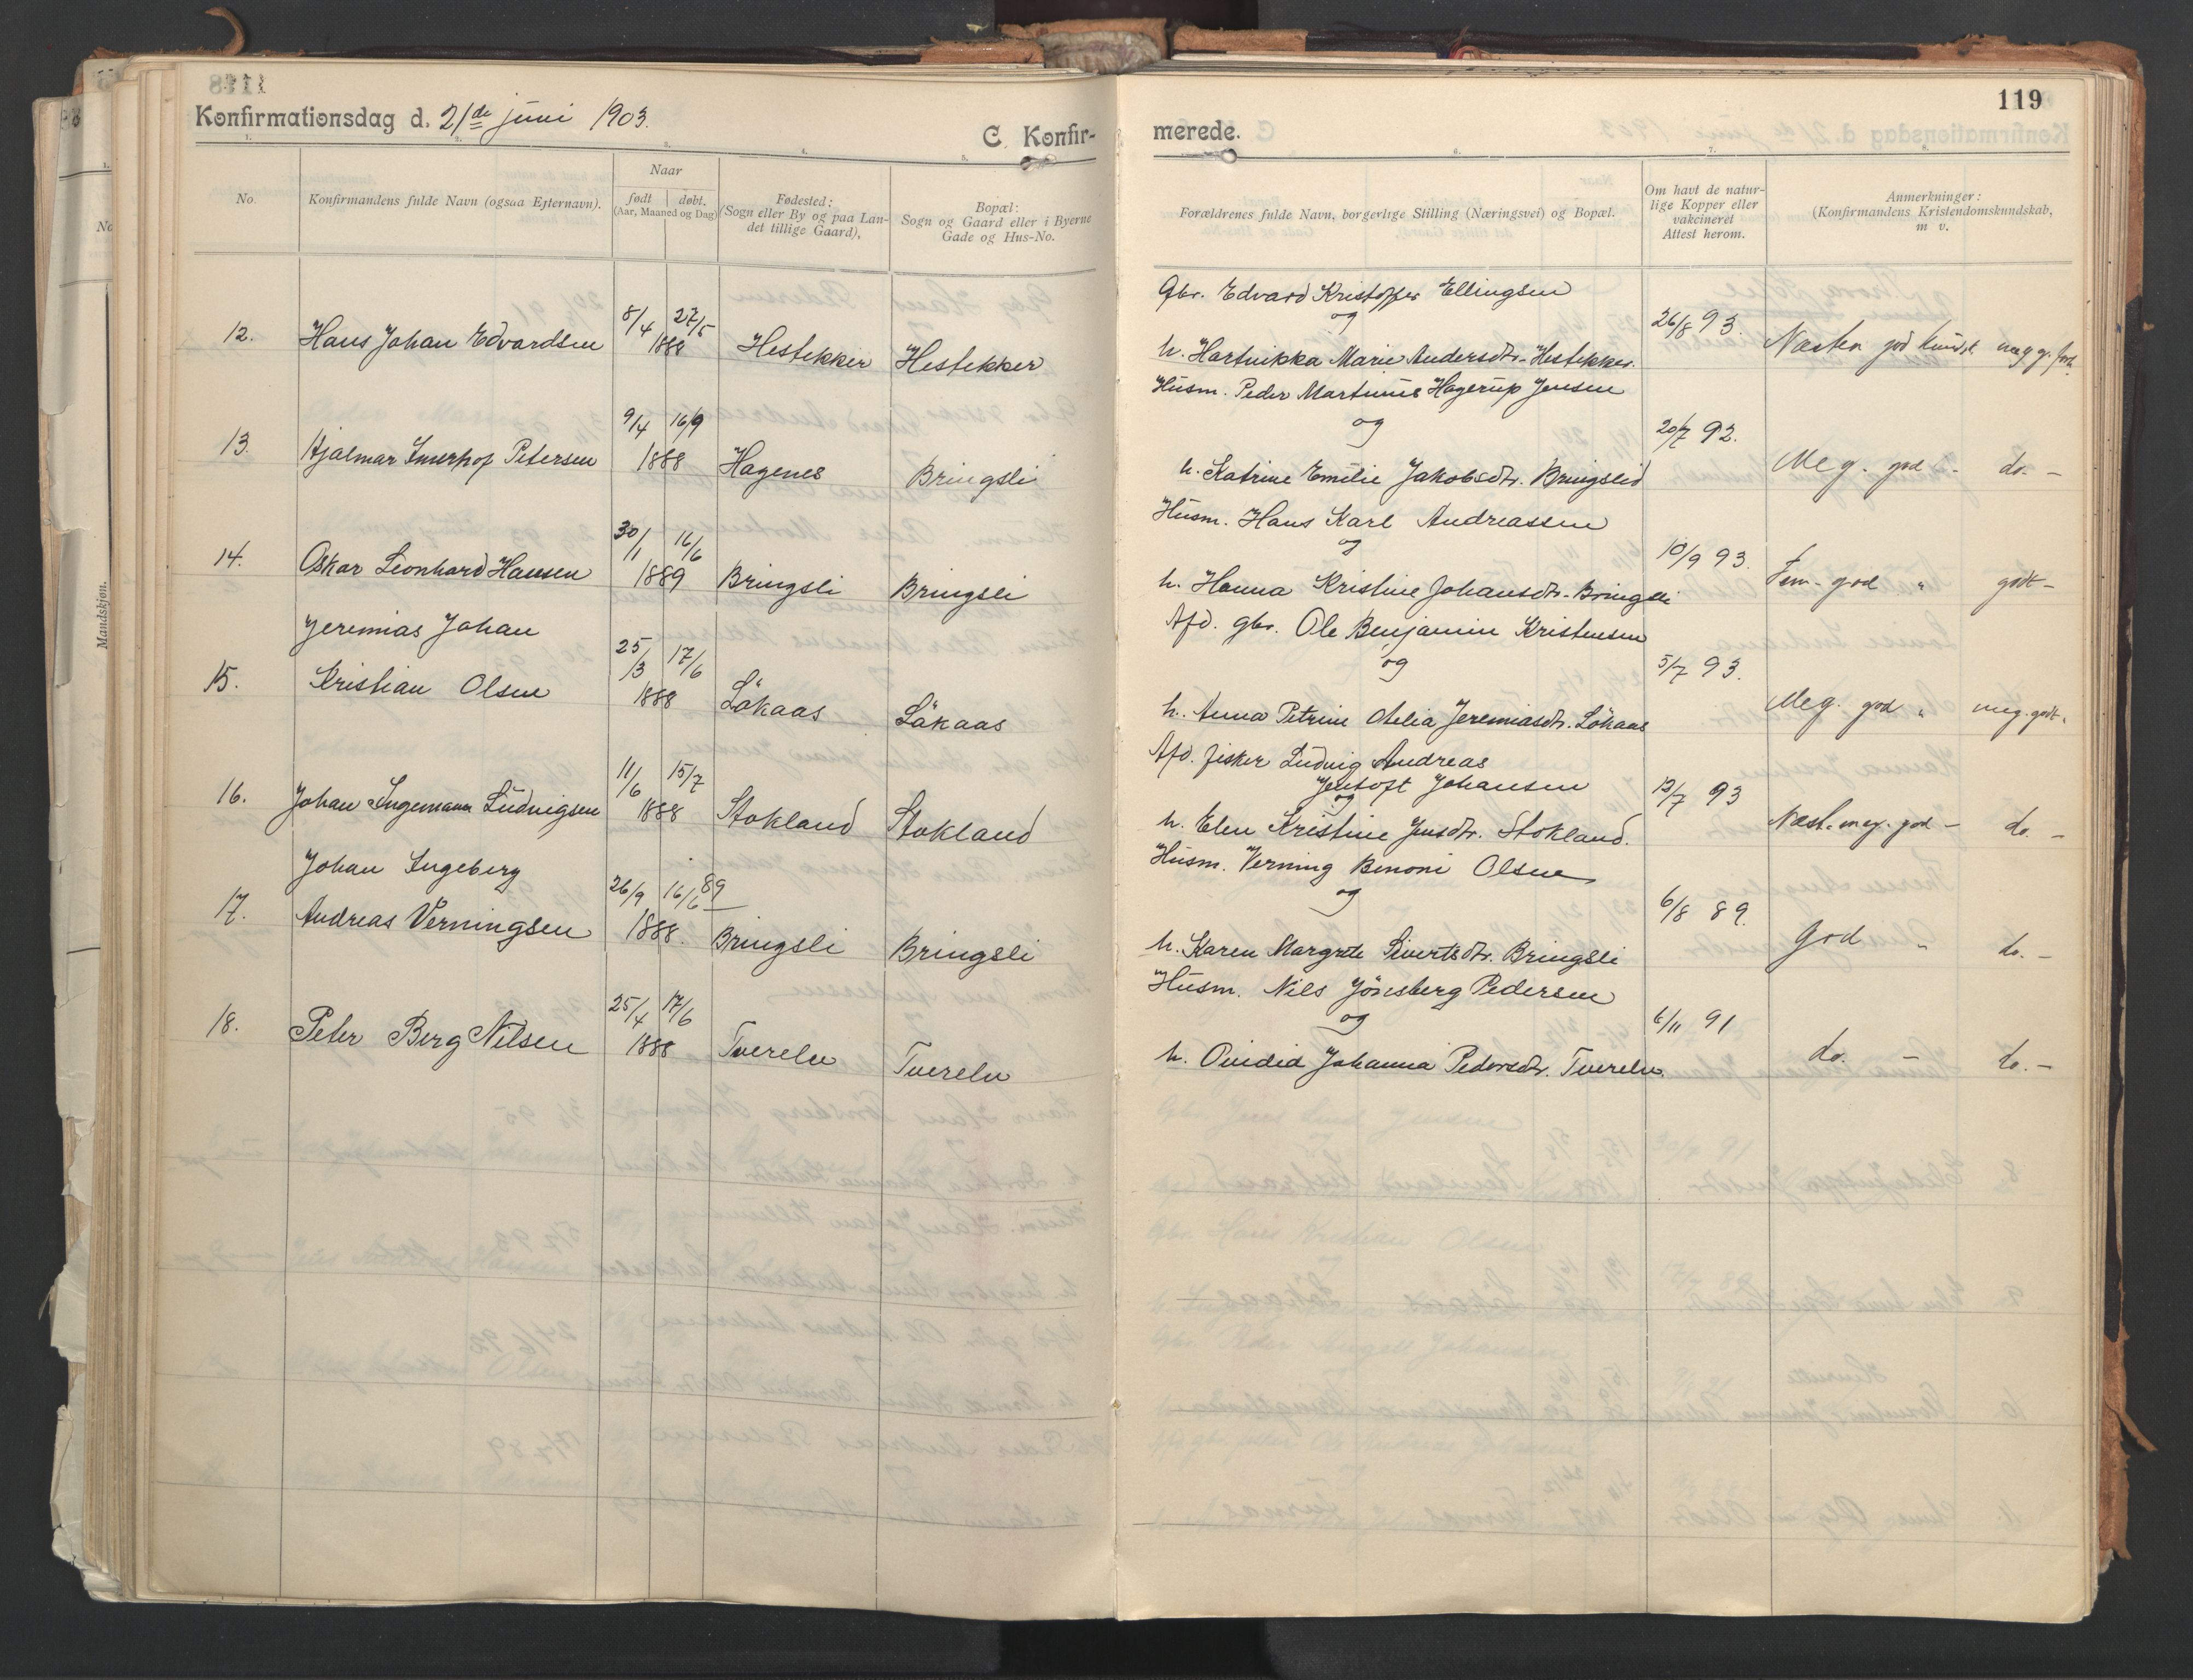 119
Konfirmationsdag d. 21de juni 1903.
C. Konfir-
merede.
No.
Konfirmandens fulde Navn (ogsaa Efternavn).
Naar
født
døbt.
(Aar, Maaned og Dag)
Fødested:
(Sogn eller By og paa Lan-
det tillige Gaard),
Bopæl:
Sogn og Gaard eller i Byerne
Gade og Hus-No.
Forældrenes fulde Navn, borgerlige Stilling (Næringsvei) og Bopæl.
Om havt de natur-
lige Kopper eller
vakcineret
Attest herom.
Anmerkninger:
(Konfirmandens Kristendomskundskab,
m v.
Mandskjøn.
12. Hans Johan Edvardsen 8/4 27/5 1888 Hestekker Hestekker
Gbr. Edvard Kristoffer Ellingsen
og
h. Hartvikka Marie Andersdtr. Hestekker.
26/8 93. Næsten god kundsk.
13. Hjalmar Petersen 9/4 16/9 1888 Hagenes Bringsli
Husm. Peder Martinus Hagerup Jensen
og
h. Katrine Emilie Jakobsdtr. Bringslid
20/7 92. Meg. god - do. -
14. Oskar Leonhard Hansen 30/1 16/6 1889 Bringsli Bringsli
Husm. Hans Karl Andreassen
og
h. Hanna Kristine Johansdtr. Bringsli
10/9 93. Tem. god " godt -
Jeremias Johan
15. Kristian Olsen 25/3 17/6 1888 Lökaas Lökaas
Afd. gbr. Ole Benjamin Kristensen
og
h. Anna Petrine Jeremiasdtr. Lökaas
5/7 93. Meg. god " meg. godt "
16. Johan Ingemann Ludvigsen 11/6 15/7 1888 Stokland Stokland
Afd. fisker Ludvig Andreas
Jentoft Johansen
og
h. Elen Kristine Jensdtr. Stokland.
12/7 93 Næst. meg. god - do. -
Johan Ingeberg
17. Andreas Verningsen 26/9 16/6 89 1888. Bringsli Bringsli
Husm. Verning Benoni Olsen
og
h. Karen Margrete Sivertsdtr. Bringsli
6/8 89. God " do. -
18. Peter Berg Nilsen 25/4 17/6 1888 Tverelv Tverelv
Husm. Nils Jönsberg Pedersen
og
h. Ovidia Johanna Pedersdtr. Tverelv.
6/11 91 do. - do. -